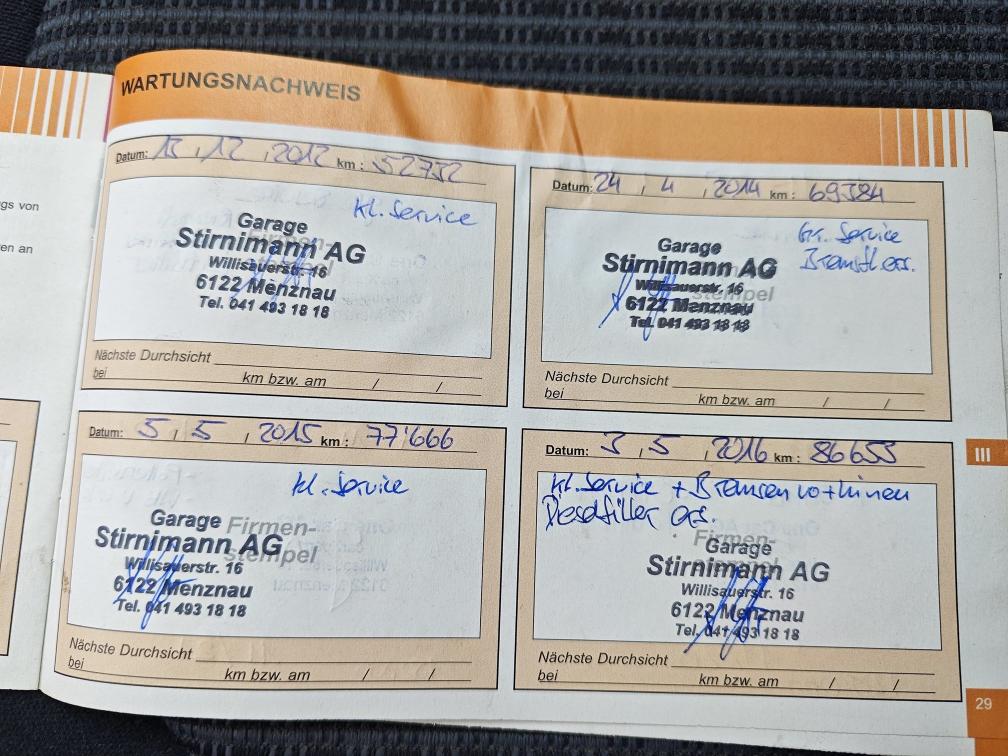 WARTUNGSNACHWEIS
Datum: 13 , 12 , 2012 km : 52732
Kl. Service
Garage
Firmen-
Stirnimann AG
Willisauerstr. 16
6122 Menznau
Tel. 041 493 18 18
Nächste Durchsicht
bei km bzw. am / /
Datum: 24 , 4 , 2014 km : 69384
Gr. Service
Bremsfl. ers.
Garage
Stirnimann AG
Willisauerstr. 16
stempel
6122 Menznau
Tel. 041 493 18 18
Nächste Durchsicht
bei km bzw. am / /
Datum: 5 , 5 , 2015 km : 77'666
kl. Service
Garage
Firmen-
Stirnimann AG
stempel
Willisauerstr. 16
6122 Menznau
Tel. 041 493 18 18
Nächste Durchsicht
bei km bzw. am / /
Datum: 3 , 5 , 2016 km : 86653
kl. Service + Bremsen vo + hinen
Dieselfilter ers.
Firmen-
Garage
Stirnimann AG
Willisauerstr. 16
6122 Menznau
Tel. 041 493 18 18
Nächste Durchsicht
bei km bzw. am / /
gs von
en an
III
29